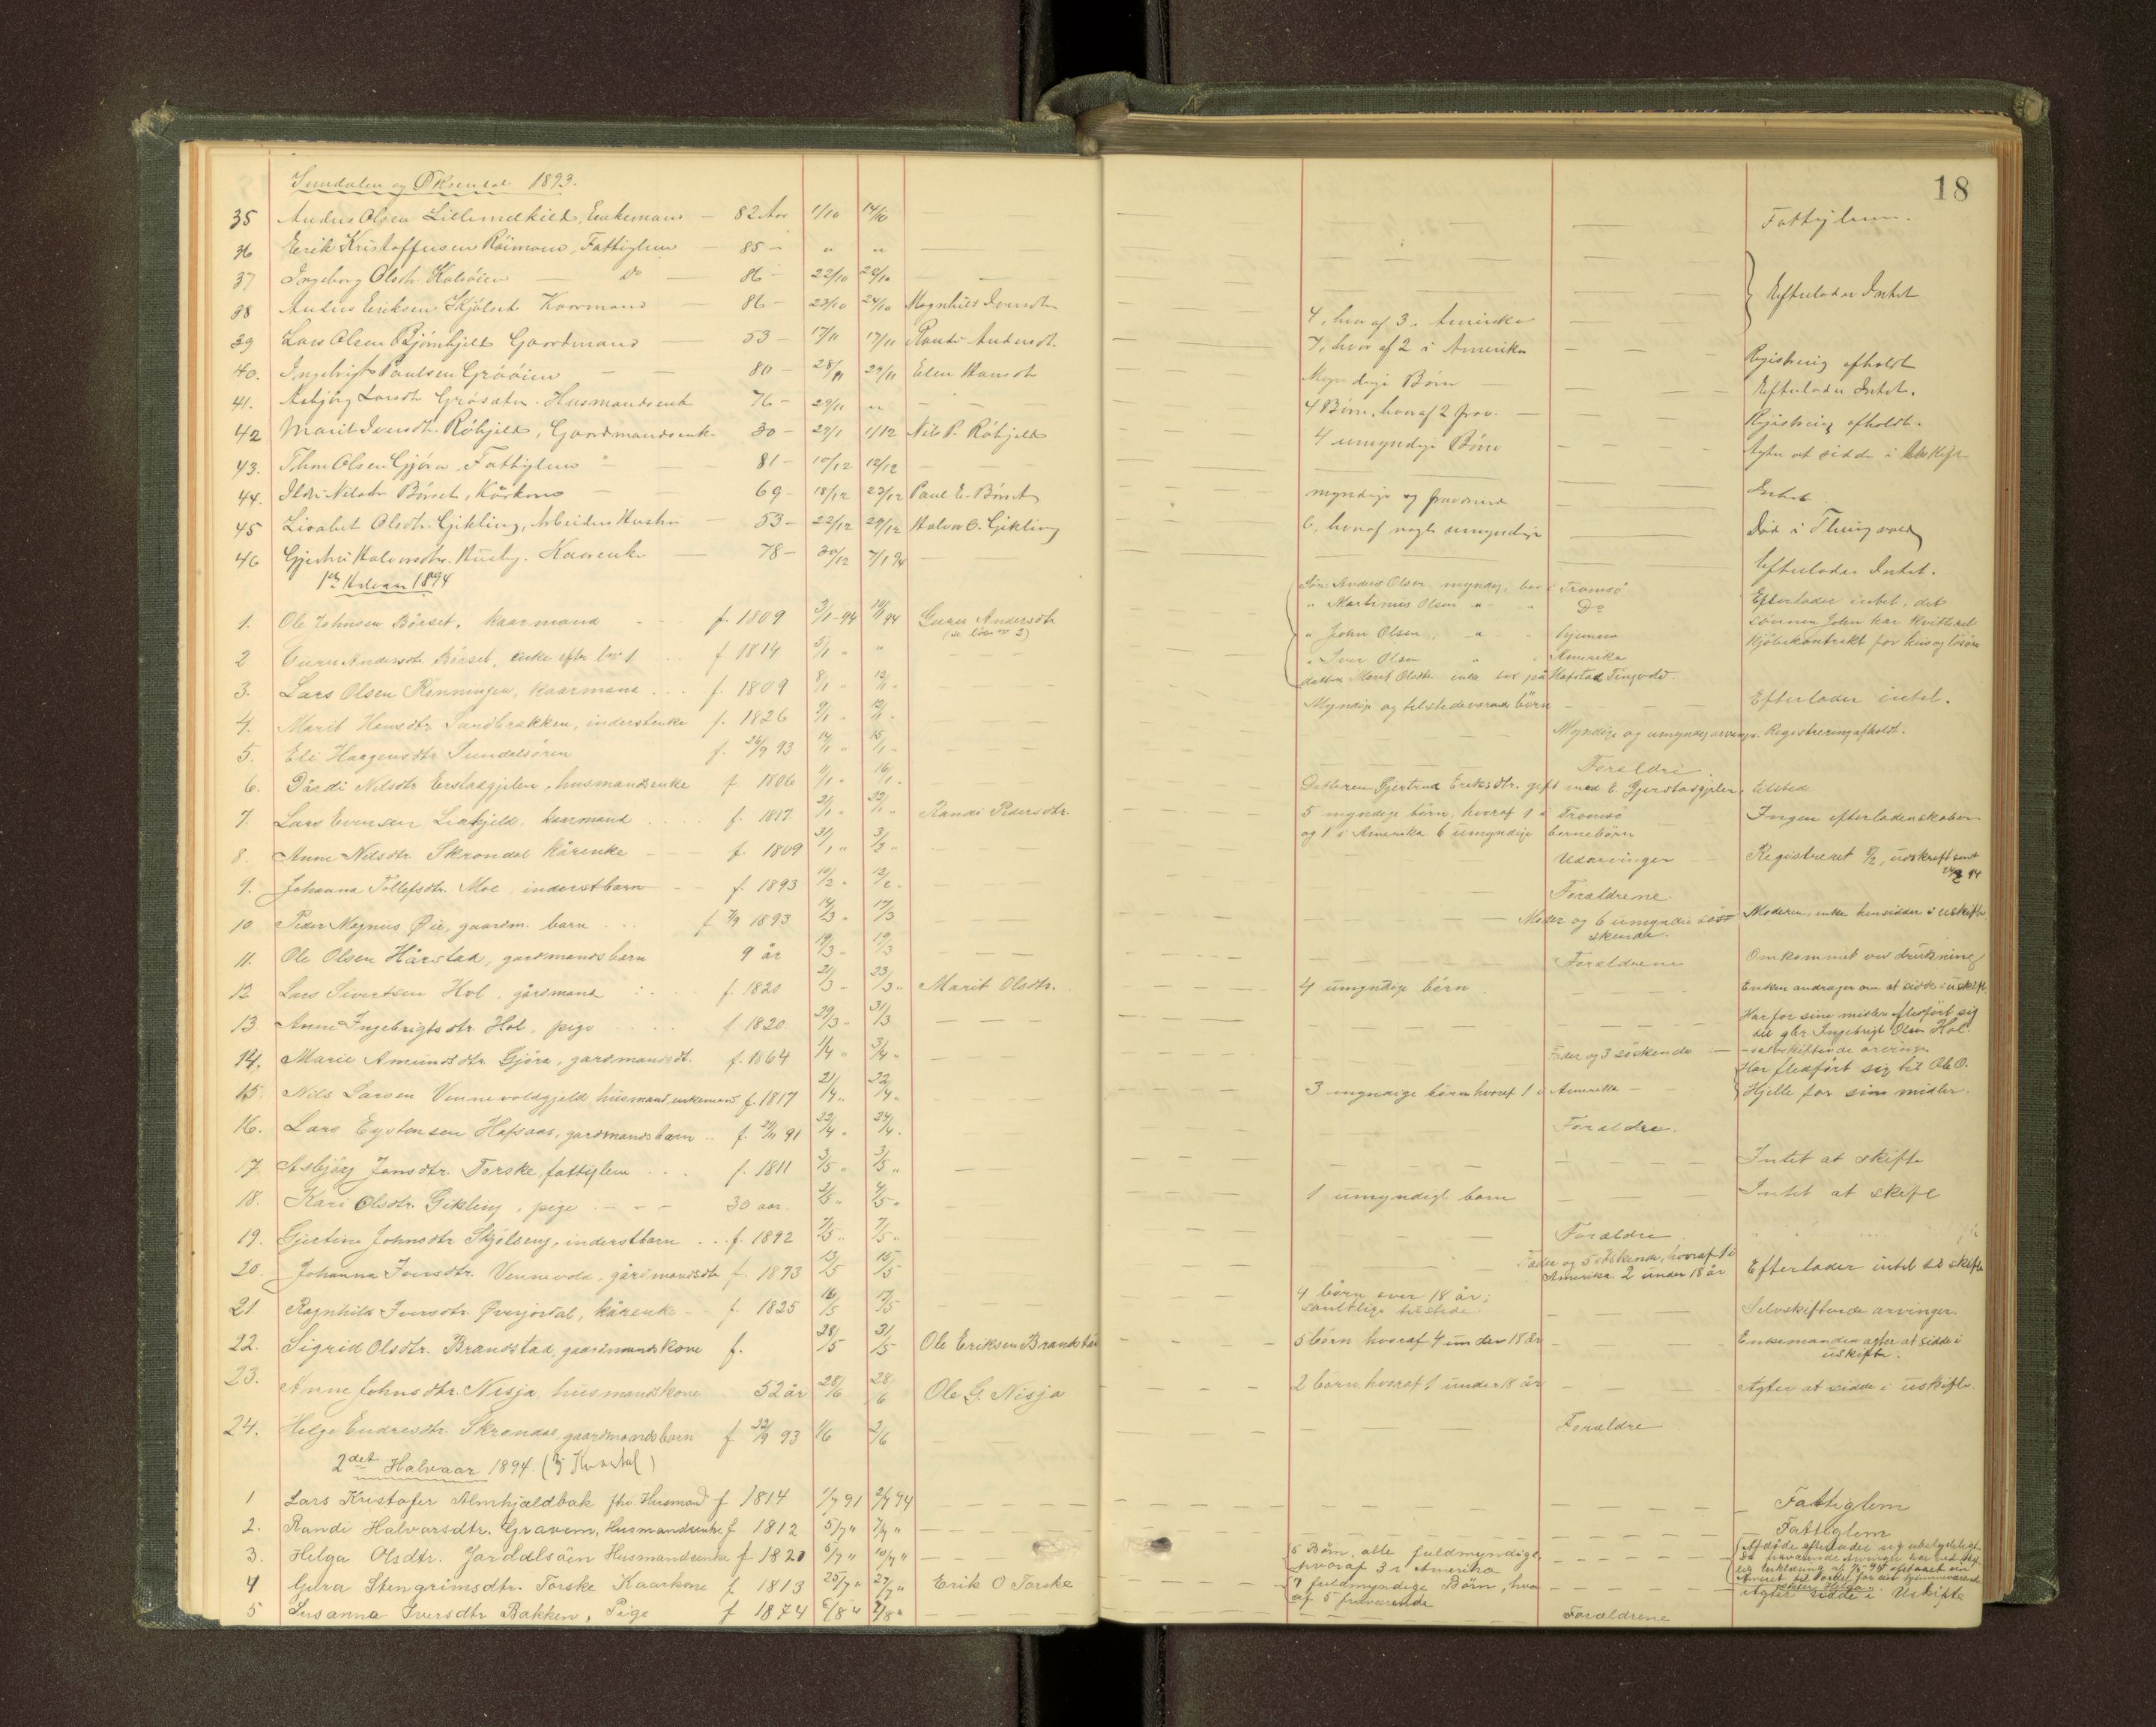 18
Sundalen og Øksendal 1893.
35 Anders Olsen Lillemelkild, Enkemand — 82 Aar 1/10 14/10 Fattiglem.
36 Erik Kristoffersen Fattiglem — 85 — " "
37 Ingeborg Olsdtr. — Do — 86 — 22/10 24/10 Efterlader Intet
38 Anders Eriksen Skjølset Kaarmand — 86 — 23/10 24/10 Magnhild Iversdtr 4, hvoraf 3 i Amerika
39 Lars Olsen Bjørnhjeld Gaardmand — 53 — 17/11 17/11 Randi Andersdt. 7, hvoraf 2 i Amerika
40. Ingebrigt Paulsen Grøøien — 80 — 28/11 29/11 Elen Hansdtr Myndige Børn Registrering afholdt
41. Asbjørg Larsdtr Husmandsenke 76 — 29/11 " 4 Børn, hvoraf 2 frav. Efterlader Intet.
42 Marit Iversdtr. Røhjeld, Gaardmandsenke 30 — 29/1 1/12 Nils P. Røhjeld 4 umyndige Børn Registrering afholdt.
43. Olsen Gjøra Fattiglem — 81 — 10/12 12/12 Agter at sidde i Uskifte
44. Nilsdtr Børset, Kårkone — 69 — 18/12 23/12 Paul E. Børset myndige og fraværende Intet
45 Lisabet Olsdtr. Gikling, Arbeiders Hustru 53 — 22/12 29/12 Halvor O. Gikling 6, hvoraf nogle umyndige Død i Thingvold
46 Halvorsdtr. Huseby. Kaarenke — 78 — 30/12 7/1 94 Efterlader Intet.
1ste Halvaar 1894
1. Ole Johnsen Børset, kaarmand f. 1809 3/1-94 10/1 94 Guru Andersdtr (se løbe nr 2)
Søn Anders Olsen myndig, bor i Tromsø
" Martinus Olsen " " Do
" John Olsen, " " hjemme
" Iver Olsen " " Amerika
datter Marit Olsdtr. enke bor på Hafstad Tingvold.
Efterlader intet, det sønnen John har kvitteret kjøbekontrakt for hus og løsøre
2 Guru Andersdtr. Børset, enke efter lbn 1 f. 1814 5/1 "
3. Lars Olsen Renningen, kaarmand f. 1809 8/1 " 12/1 " Myndige og tilstedeværende børn Efterlader intet.
4. Marit Hansdtr Sandbrækken, inderstenke f. 1826 9/1 12/1 " Myndige og umyndige arvinger. Registrering afholdt.
5. Eli Haagensdtr Sundalsøren f. 26/9 93 14/1 " 15/1 " Forældre
6. Dårdi Nilsdtr Erstadgjelen, husmandsenke f. 1806 9/1 " 16/1 " Datteren Gjertrud Eriksdtr. gift med E. tilsted
7. Lars Evensen kaarmand f. 1817. 21/1 " 22/1 " Randi Pedersdtr. 5 myndige børn, hvoraf 1 i Tromsø og 1 i Amerika 6 umyndige børnebørn Ingen efterladenskaber
8. Anne Nilsdtr Skrondal kårenke f. 1809 31/1 " 3/2 " Udarvinger Registreret 8/2, udskrift sendt 24/2 94
9. Johanna Tollefsdtr. Moe, inderstbarn f. 1893 10/2 " 12/2 " Forældrene
10 Peder Magnus Øie, gaardm. barn f 7/9 1893 14/3 " 17/3 Moder og 6 umyndige søskende. Moderen, enke hensidder i uskifte
11. Ole Olsen Hårstad, gardmandsbarn 9 år 19/3 " 19/3 Forældrene Omkommet ved drukning
12 Lars Sivertsen Hol, gårdmand f. 1820 21/3 " 23/3 " Marit Olsdtr. 4 umyndige børn Enken andrager om at sidde i uskifte
13 Anne Ingebrigtsdtr. Hol, pige f. 1820 29/3 " 31/3 Har for sine midler fledført sig til gbr Ingebrigt Olsen Hol
14. Marie Amundsdtr Gjøra, gardmandsdt. f. 1864 1/4 " 3/4 " Fader og 3 søskende — selvskiftende arvinger
15. Nils Larsen Vennevoldgjeld husmand, enkemand f. 1817 21/4 " 22/4 " 3 myndige børn hvoraf 1 i Amerika Har fledført sig til Ole O. Hjelle for sine midler.
16. Lars Eystensen Hafsaas, gardmandsbarn f. 29/11 91 22/4 " 24/4 " Forældre.
17. Asbjørg Jonsdtr. Torske, fattiglem f. 1811 3/5 " 3/5 " Intet at skifte
18. Kari Olsdtr. Gikling, pige 30 aar. 3/5 " 4/5 " 1 umyndigt barn Intet at skifte
19. Gjertine Johnsdtr Skjølseng, inderstbarn f. 1892 7/5 " 7/5 " Forældre
20. Johanna Iversdtr. Vennevold, gårdmandsdtr f. 1873 13/5 15/5 Fader og 5 søskende, hvoraf 1 i Amerika 2 under 18 år Efterlader intet til skifte
21 Ragnhild Iversdtr. Øverjordal, kårenke f. 1825 16/5 17/5 4 børn over 18 år; samtlige tilstede Selvskiftende arvinger.
22. Sigrid Olsdtr. Brandstad, gaardmandskone f. 28/5 31/5 Ole Eriksen Brandstad 5 børn hvoraf 4 under 18 år Enkemanden agter at sidde i uskifte.
23. Anne Johnsdtr. Nisja husmandskone 52 år 28/6 28/6 Ole G. Nisja 2 børn hvoraf 1 under 18 år Agter at sidde i uskifte.
24. Helge Endresdtr. Skrondal, gaardmandsbarn f 22/9 93 1/6 2/6 Forældre
2det Halvaar 1894. (3j Kvartal)
1 Lars Kristofer Almhjældbak fhv. Husmand f 1814 1/7 91 2/7 94 Fattiglem
2. Randi Halvorsdtr. Gravem, Husmandsenke f 1812 5/7 " 7/7 " Fattiglem
3. Helga Olsdtr. Jordalsøen Husmandsenke f 1820 6/7 " 10/7 " 5 Børn, alle fuldmyndige hvoraf 3 i Amerika Afdøde efterlader sig ubetydeligt
4 Gura Stengrimsdtr. Torske Kaarkone f 1813 25/7 " 27/7 " Erik O Torske 7 fuldmyndige Børn, hvoraf 5 fraværende Agter sidde i Uskifte
5 Susanna Iversdtr Bakken, Pige f 1874 6/8 " 7/8 " Forældrene